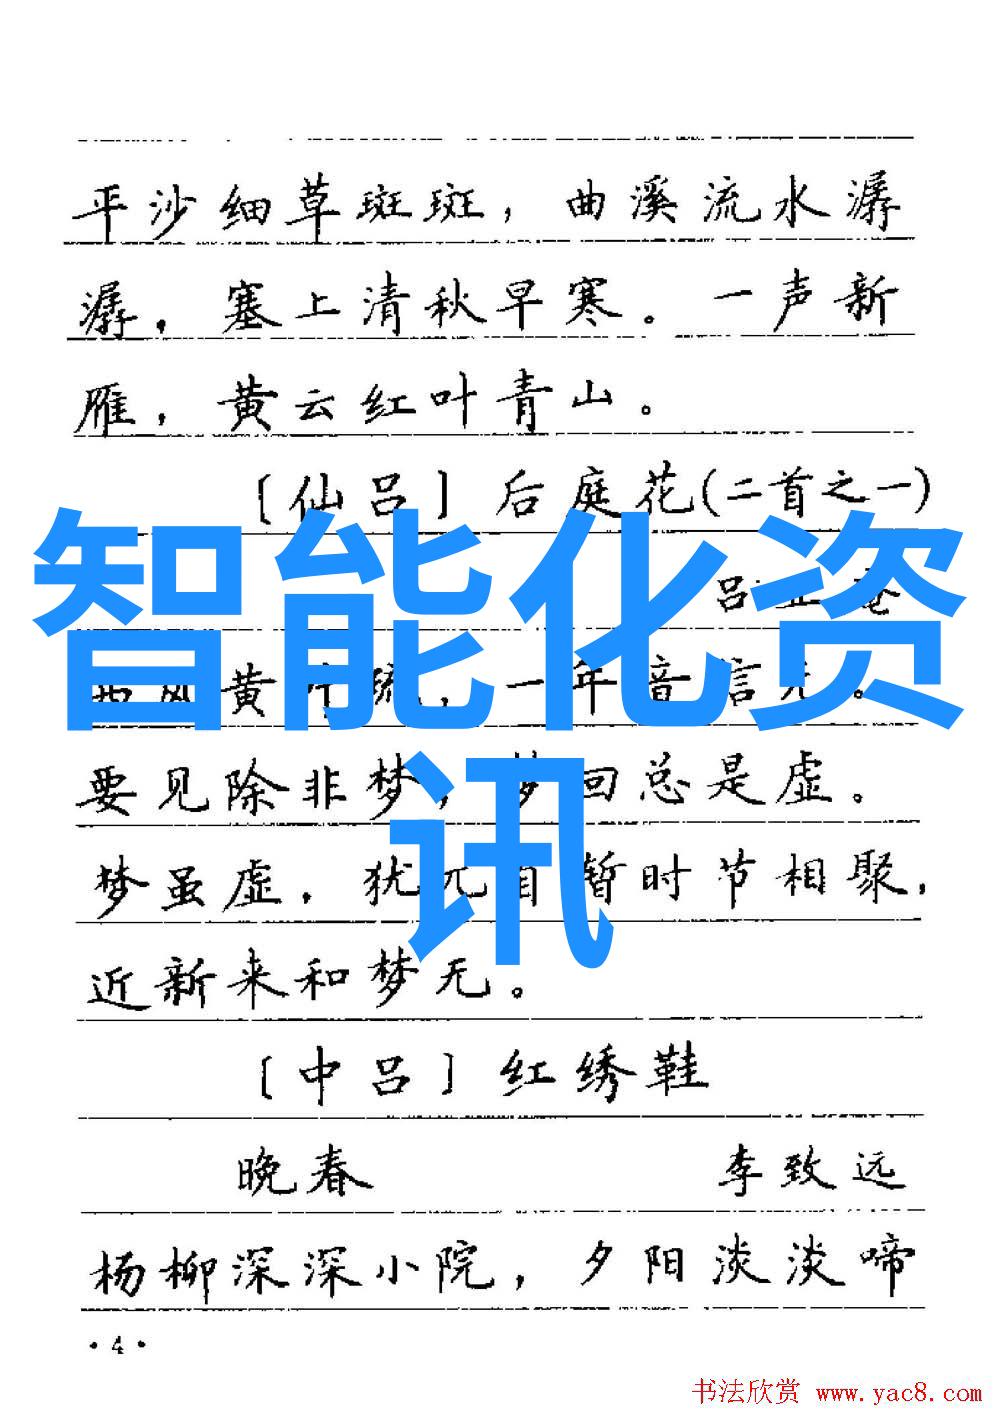 平沙细草斑斑，曲溪流水潺
潺，塞上清秋早寒。一声新
雁，黄云红叶青山。
〔仙吕〕后庭花(二首之一)
智能化资
吕
黄 ，一年音信无。
要见除非梦，梦回总是虚。
讯
梦虽虚，犹兀自暂时节相聚，
近新来和梦无。
〔中吕〕红绣鞋
晚春 李致远
杨柳深深小院，夕阳淡淡啼
·4·
书法欣赏 www.yac8.com